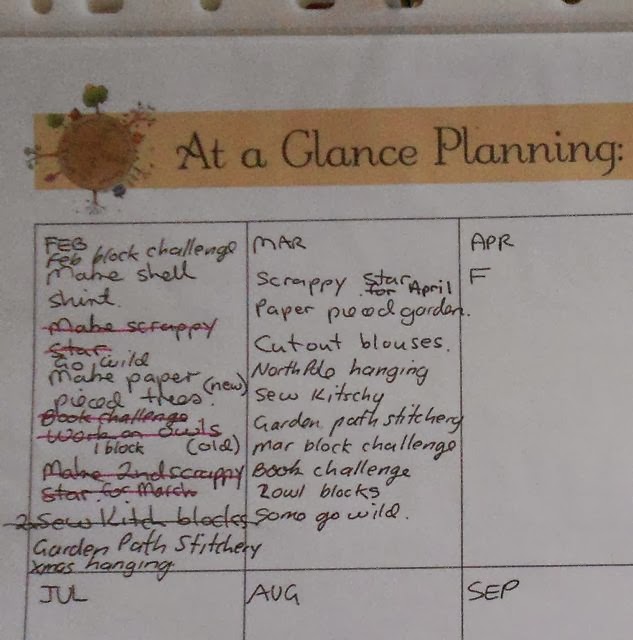 At a Glance Planning:
FEB
Feb block challenge
Make shell
shirt.
Make scrappy
star
Go wild
Make paper (new)
pieced trees.
Book challenge
Work on owls
1 block (old)
Make 2nd scrappy
star for March
2 Sew Kitch blocks
Garden Path Stitchery
xmas hanging
MAR
Scrappy star
for April
Paper pieced garden.
Cut out blouses.
North Pole hanging
Sew Kitschy
Garden path stitchery
mar block challenge
Book challenge
2 owl blocks
Some go wild.
APR
F
JUL
AUG
SEP